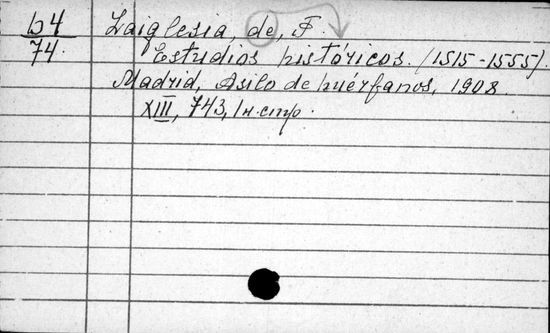 b4 Laiglesia, de, F.
74 Estudios históricos. (1515-1555).
Madrid, Asilo de huérfanos, 1908.
XIII, 743, 1 н. стр.